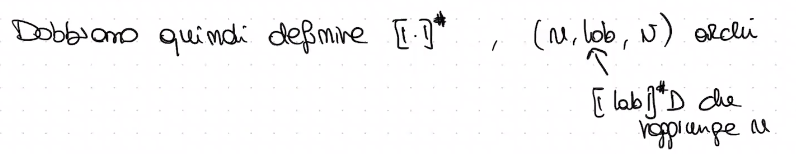 Dobbiamo quindi definire ⟦·⟧# , (u, lab, v) archi
⟦lab⟧# D che
raggiunge u